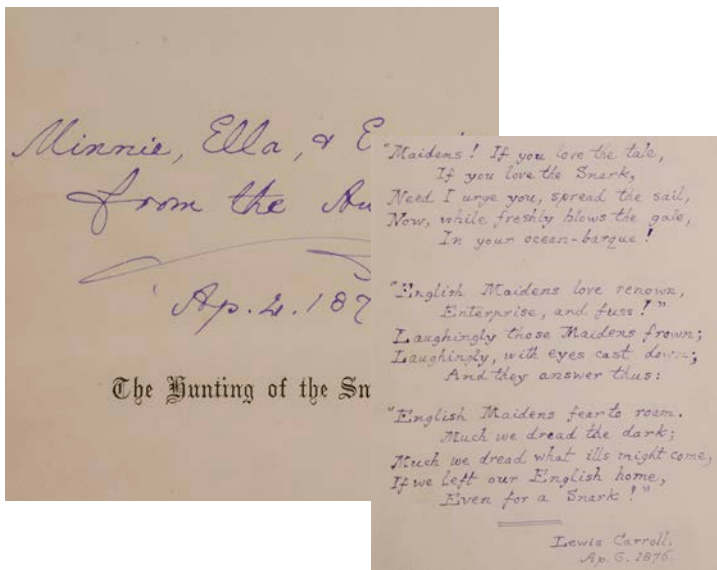 Minnie, Ella, &
from the
Ap. 4. 187
The Hunting of the Sn
"Maidens! If you love the tale,
If you love the Snark,
Need I urge you, spread the sail,
Now, while freshly blows the gale,
In your ocean-barque!
"English Maidens love renown,
Enterprise, and fuss!"
Laughingly those Maidens frown;
Laughingly, with eyes cast down;
And they answer thus:
"English Maidens fear to roam.
Much we dread the dark;
Much we dread what ills might come,
If we left our English home,
Even for a Snark!"
Lewis Carroll.
Ap. 6. 1876